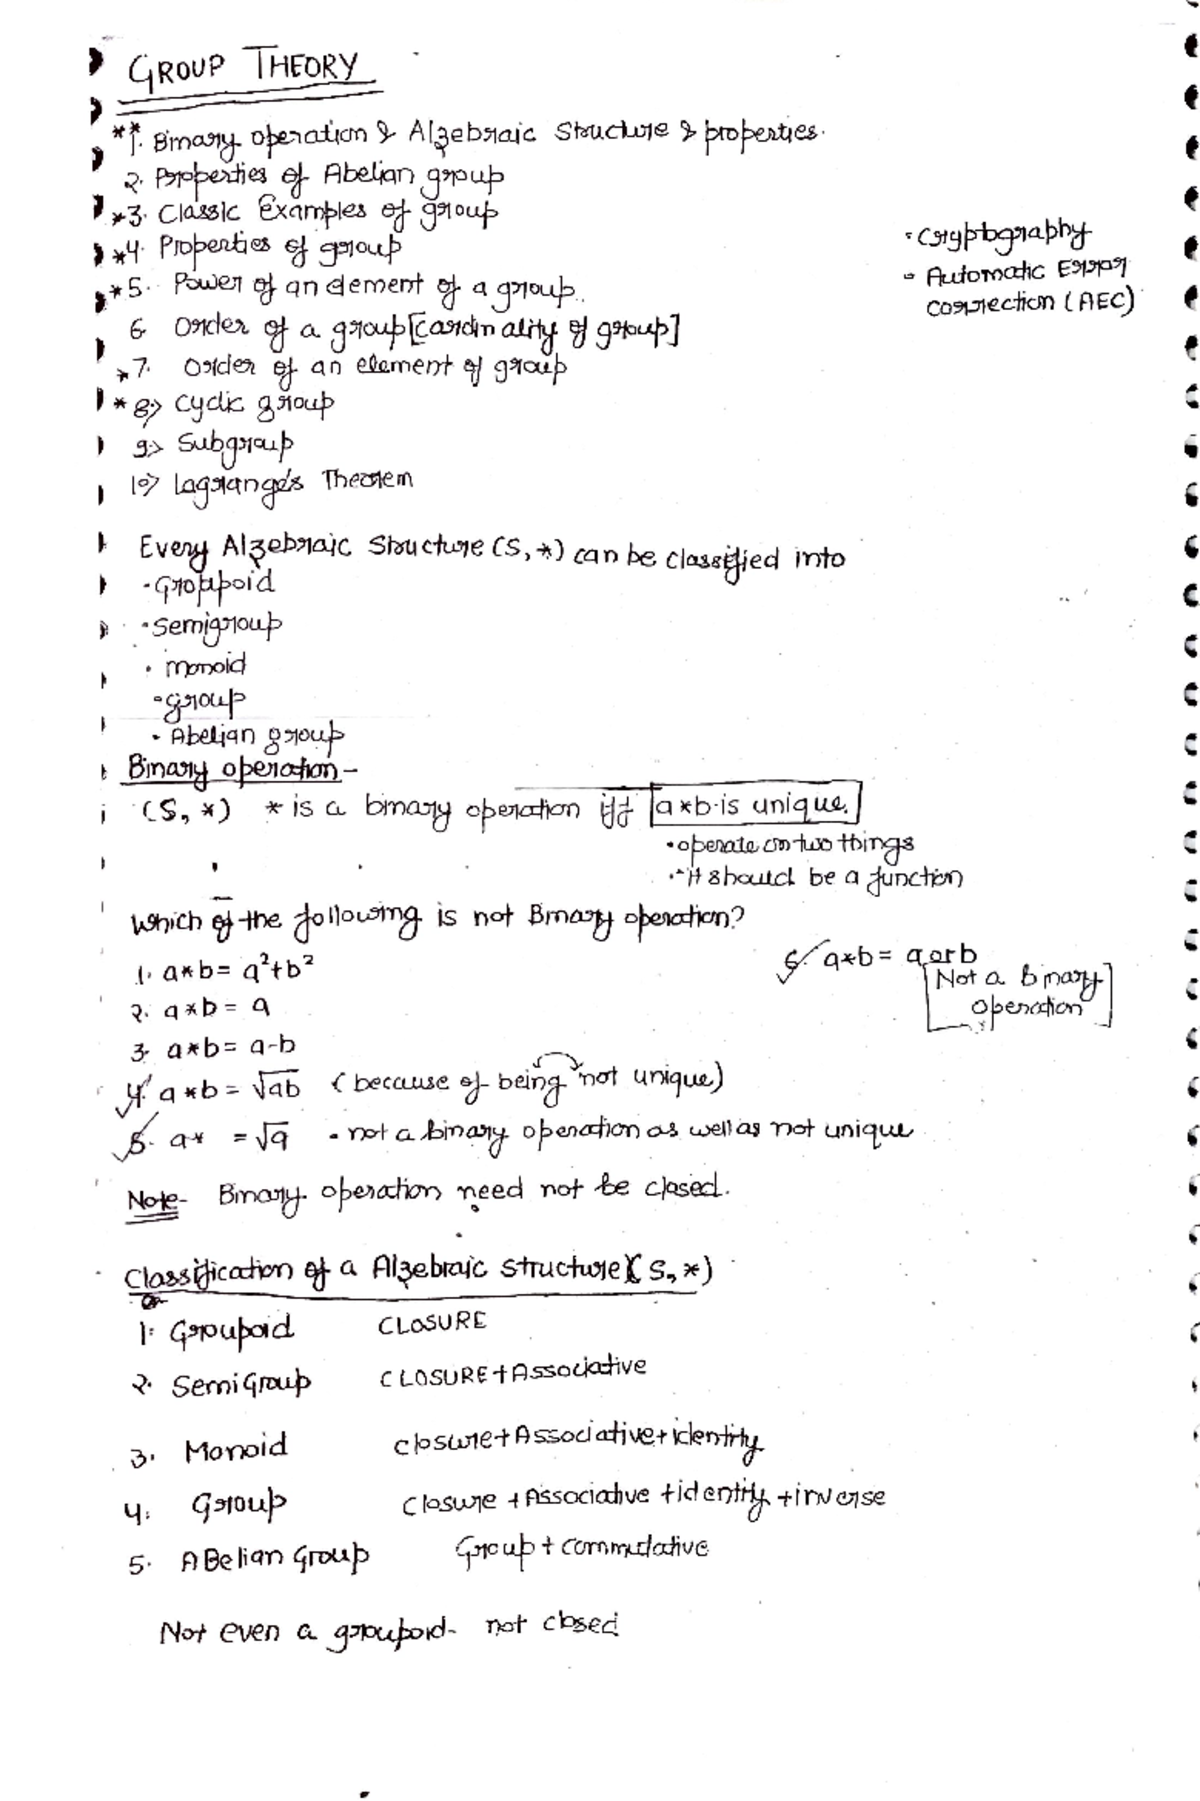 GROUP THEORY
**1. Binary operation & Algebraic Structure & properties.
2. Properties of Abelian group
*3. Classic Examples of group
*4. Properties of group
*5. Power of an element of a group.
6. Order of a group [cardinality of group]
*7. Order of an element of group
*8> Cyclic group
9> Subgroup
10> Lagrange's Theorem
• Cryptography
• Automatic Error
correction (AEC)
Every Algebraic Structure (S, *) can be classified into
• Groupoid
• Semigroup
• monoid
• group
• Abelian group
Binary operation -
(S, *) * is a binary operation iff a*b is unique.
• operate on two things
• it should be a function
Which of the following is not Binary operation?
1. a*b = a²+b²
2. a*b = a
3. a*b = a-b
4. a*b = √ab (because of being not unique)
5. a* = √a - not a binary operation as well as not unique
6. a*b = a or b
[Not a binary
operation]
Note- Binary operation need not be closed.
Classification of a Algebraic structure (S, *)
1. Groupoid CLOSURE
2. SemiGroup CLOSURE + Associative
3. Monoid closure + Associative + identity
4. Group Closure + Associative + identity + inverse
5. ABelian Group Group + commutative
Not even a groupoid - not closed